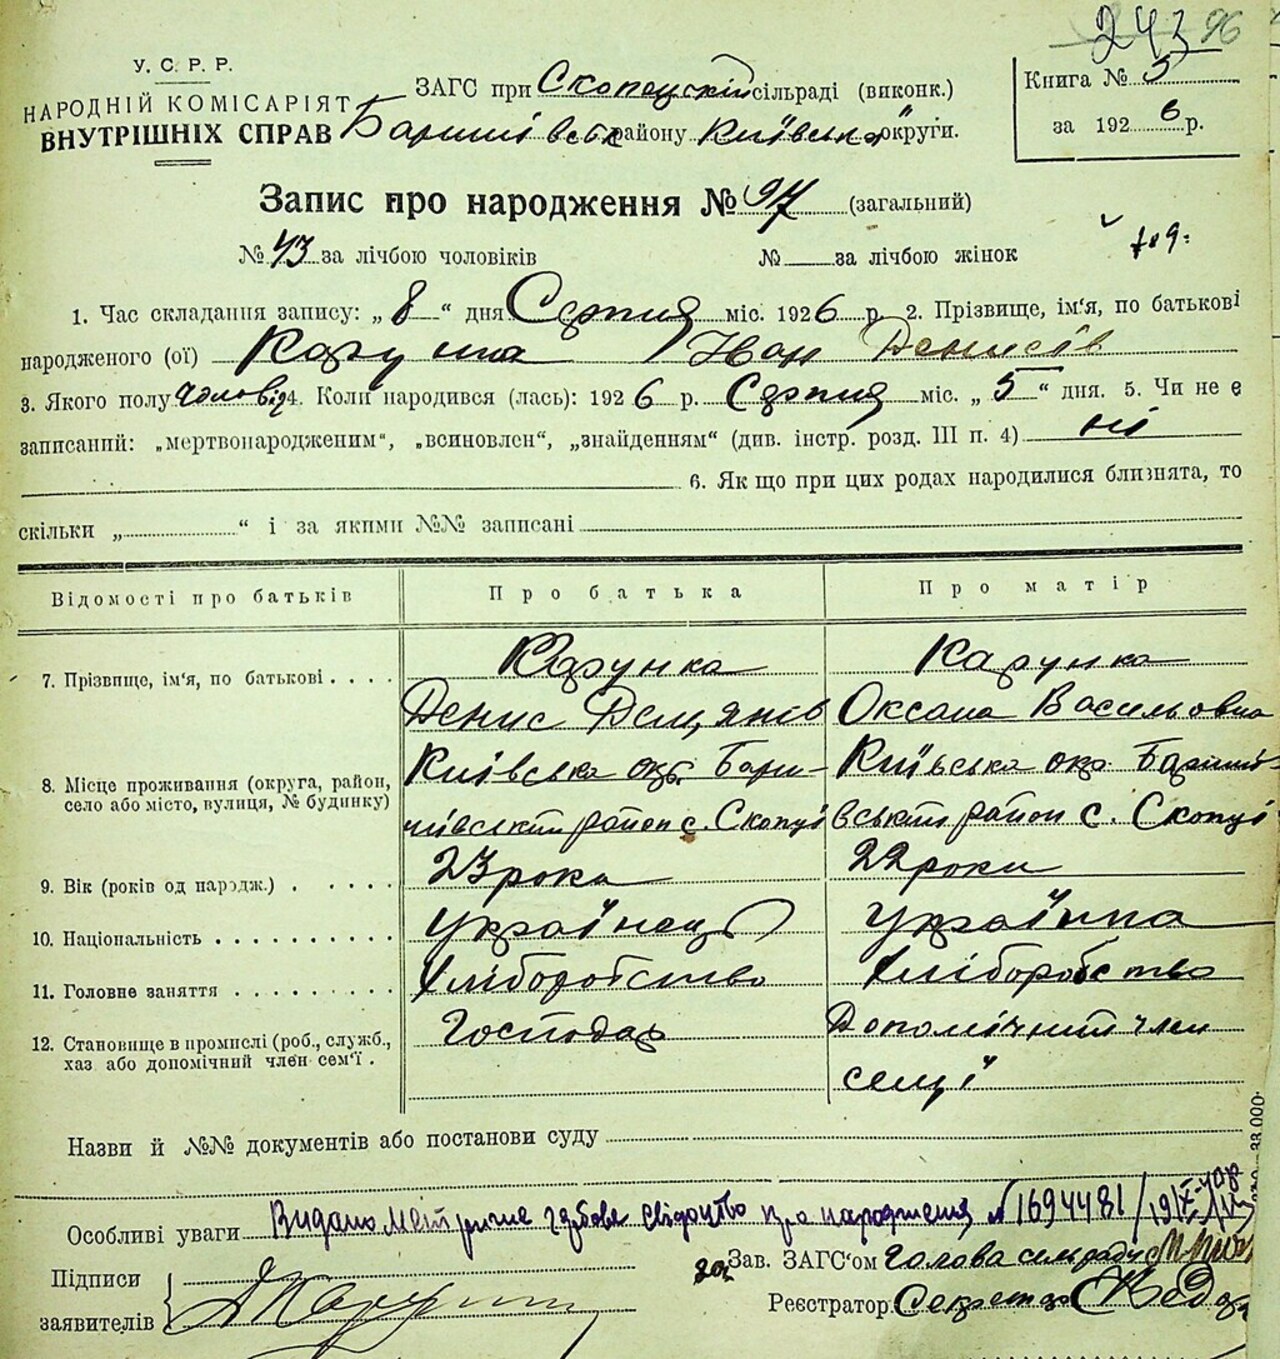 243 96
У. С. Р. Р.
НАРОДНІЙ КОМІСАРІЯТ
ВНУТРІШНІХ СПРАВ
ЗАГС при Скопецькій сільраді (виконк.)
Баришівськ району Київська округи.
Книга № 5
за 1926 р.
Запис про народження № 97 (загальний)
№ 43 за лічбою чоловіків № за лічбою жінок
1. Час складання запису: „ 8 “ дня Серпня міс. 1926 р. 2. Прізвище, ім'я, по батькові
народженого (ої) Карунка Іван Денисів
3. Якого полу чоловіч 4. Коли народився (лась): 1926 р. Серпня міс. „ 5 “ дня. 5. Чи не є
записаний: „мертвонародженим“, „всиновлен“, „знайденням“ (див. інстр. розд. III п. 4) ні
6. Як що при цих родах народилися близнята, то
скільки „ “ і за якими №№ записані
Відомості про батьків Про батька Про матір
7. Прізвище, ім'я, по батькові . . . . Карунка Карунка
Денис Демянів Оксана Васильовна
8. Місце проживання (округа, район, село або місто, вулиця, № будинку) Київська окр. Бари- Київська окр. Бариші-
шівський район с. Скопці вський район с. Скопці
9. Вік (років од нардж.) . . . . . 23 рока 22 роки
10. Національність . . . . . . . . . . Українець Українка
11. Головне заняття . . . . . . . . . Хліборобство Хліборобство
12. Становище в промислі (роб., служб., хаз. або допомічний член сем'ї . Господар Допомічний член
семї
Назви й №№ документів або постанови суду
Особливі уваги Видано свідоцтво про народження № 1694481
Підписи
заявителів
за Зав. ЗАГС'ом Голова сельради
Реєстратор Секретар